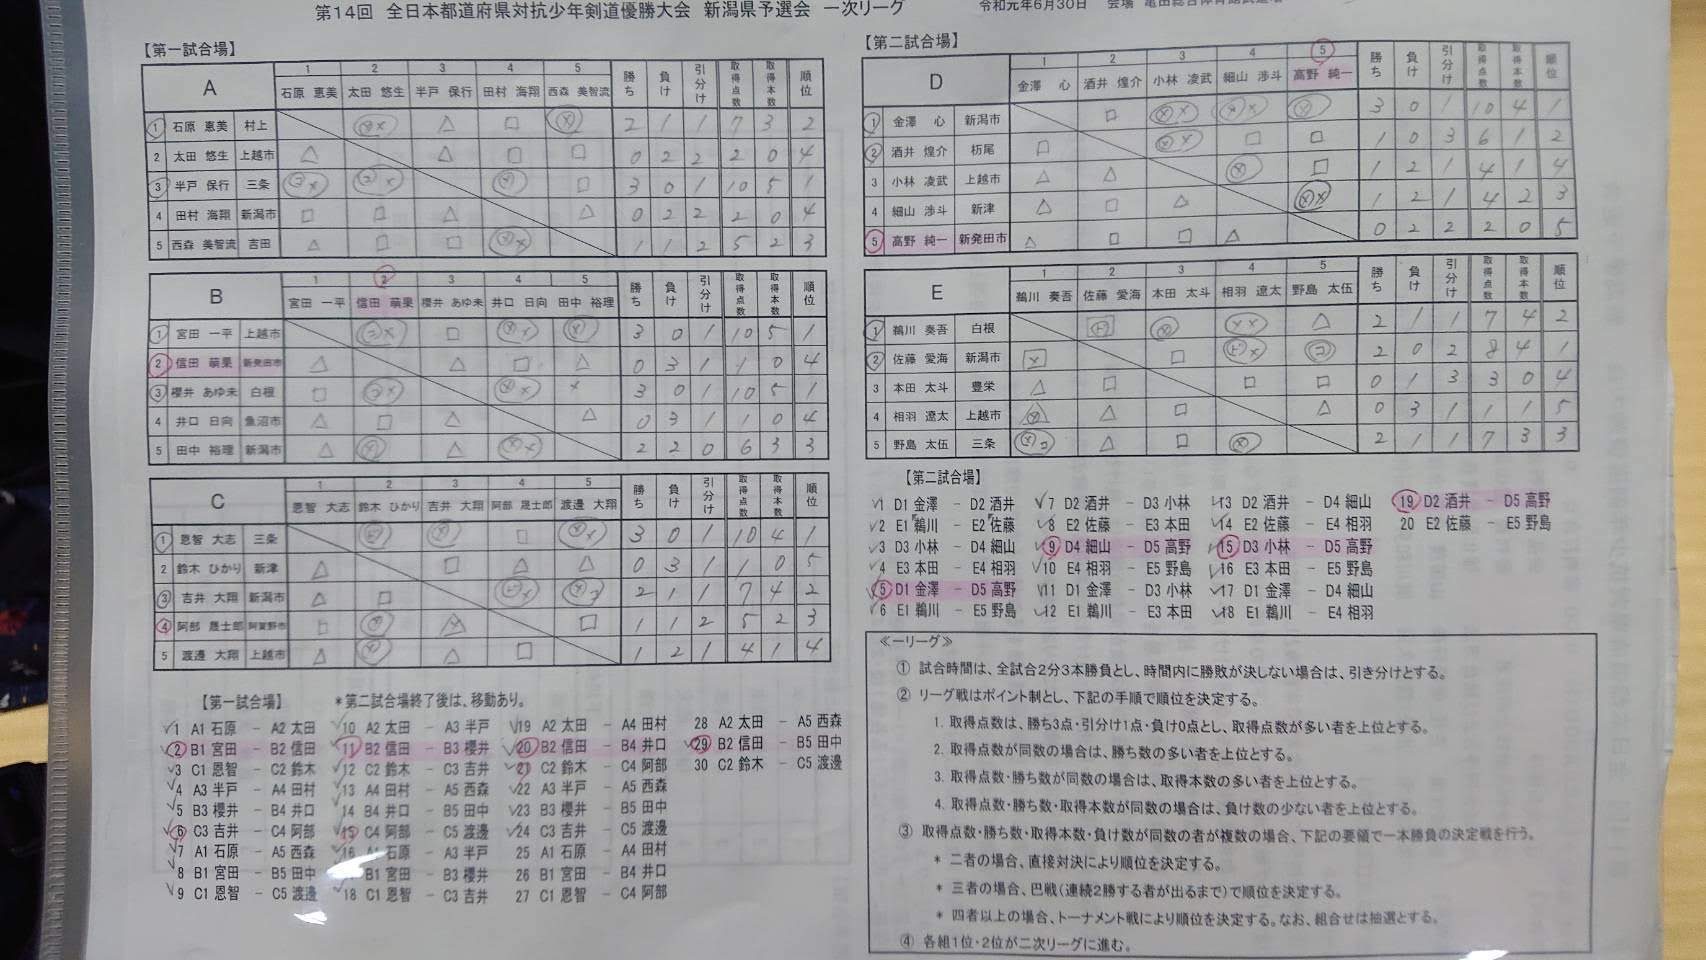 第14回 全日本都道府県対抗少年剣道優勝大会 新潟県予選会 一次リーグ
令和元年6月30日 会場
【第一試合場】
A 1 2 3 4 5 勝ち 負け 引分け 取得点数 取得本数 順位
石原 恵美 太田 悠生 半戸 保行 田村 海翔 西森 美智流
1 石原 恵美 村上 △ □ 2 1 1 7 3 2
2 太田 悠生 上越市 △ △ □ □ 0 2 2 2 0 4
3 半戸 保行 三条 □ 3 0 1 10 5 1
4 田村 海翔 新潟市 □ □ △ △ 0 2 2 2 0 4
5 西森 美智流 吉田 △ □ □ 1 1 2 5 2 3
B 1 2 3 4 5 勝ち 負け 引分け 取得点数 取得本数 順位
宮田 一平 信田 萌果 櫻井 あゆ未 井口 日向 田中 裕理
1 宮田 一平 上越市 □ 3 0 1 10 5 1
2 信田 萌果 新発田市 △ △ □ △ 0 3 1 1 0 4
3 櫻井 あゆ未 白根 □ 3 0 1 10 5 1
4 井口 日向 魚沼市 △ □ △ △ 0 3 1 1 0 4
5 田中 裕理 新潟市 △ △ 2 2 0 6 3 3
C 1 2 3 4 5 勝ち 負け 引分け 取得点数 取得本数 順位
恩智 大志 鈴木 ひかり 吉井 大翔 阿部 晟士郎 渡邊 大翔
1 恩智 大志 三条 □ 3 0 1 10 4 1
2 鈴木 ひかり 新津 △ □ △ △ 0 3 1 1 0 5
3 吉井 大翔 新潟市 △ □ 2 1 1 7 4 2
4 阿部 晟士郎 阿賀野市 □ □ 1 1 2 5 2 3
5 渡邊 大翔 上越市 △ △ □ 1 2 1 4 1 4
【第一試合場】 *第二試合場終了後は、移動あり。
1 A1 石原 － A2 太田 10 A2 太田 － A3 半戸 19 A2 太田 － A4 田村 28 A2 太田 － A5 西森
2 B1 宮田 － B2 信田 11 B2 信田 － B3 櫻井 20 B2 信田 － B4 井口 29 B2 信田 － B5 田中
3 C1 恩智 － C2 鈴木 12 C2 鈴木 － C3 吉井 21 C2 鈴木 － C4 阿部 30 C2 鈴木 － C5 渡邊
4 A3 半戸 － A4 田村 13 A4 田村 － A5 西森 22 A3 半戸 － A5 西森
5 B3 櫻井 － B4 井口 14 B4 井口 － B5 田中 23 B3 櫻井 － B5 田中
6 C3 吉井 － C4 阿部 15 C4 阿部 － C5 渡邊 24 C3 吉井 － C5 渡邊
7 A1 石原 － A5 西森 16 A1 石原 － A3 半戸 25 A1 石原 － A4 田村
8 B1 宮田 － B5 田中 17 B1 宮田 － B3 櫻井 26 B1 宮田 － B4 井口
9 C1 恩智 － C5 渡邊 18 C1 恩智 － C3 吉井 27 C1 恩智 － C4 阿部
【第二試合場】
D 1 2 3 4 5 勝ち 負け 引分け 取得点数 取得本数 順位
金澤 心 酒井 煌介 小林 凌武 細山 渉斗 高野 純一
1 金澤 心 新潟市 □ 3 0 1 10 4 1
2 酒井 煌介 栃尾 □ □ □ 1 0 3 6 1 2
3 小林 凌武 上越市 △ △ □ 1 2 1 4 1 4
4 細山 渉斗 新津 △ □ △ 1 2 1 4 2 3
5 高野 純一 新発田市 △ □ □ △ 0 2 2 2 0 5
E 1 2 3 4 5 勝ち 負け 引分け 取得点数 取得本数 順位
鵜川 奏吾 佐藤 愛海 本田 太斗 相羽 遼太 野島 太伍
1 鵜川 奏吾 白根 △ 2 1 1 7 4 2
2 佐藤 愛海 新潟市 □ 2 0 2 8 4 1
3 本田 太斗 豊栄 △ □ □ □ 0 1 3 3 0 4
4 相羽 遼太 上越市 △ □ △ 0 3 1 1 1 5
5 野島 太伍 三条 △ □ 2 1 1 7 3 3
【第二試合場】
1 D1 金澤 － D2 酒井 7 D2 酒井 － D3 小林 13 D2 酒井 － D4 細山 19 D2 酒井 － D5 高野
2 E1 鵜川 － E2 佐藤 8 E2 佐藤 － E3 本田 14 E2 佐藤 － E4 相羽 20 E2 佐藤 － E5 野島
3 D3 小林 － D4 細山 9 D4 細山 － D5 高野 15 D3 小林 － D5 高野
4 E3 本田 － E4 相羽 10 E4 相羽 － E5 野島 16 E3 本田 － E5 野島
5 D1 金澤 － D5 高野 11 D1 金澤 － D3 小林 17 D1 金澤 － D4 細山
6 E1 鵜川 － E5 野島 12 E1 鵜川 － E3 本田 18 E1 鵜川 － E4 相羽
≪一リーグ≫
① 試合時間は、全試合2分3本勝負とし、時間内に勝敗が決しない場合は、引き分けとする。
② リーグ戦はポイント制とし、下記の手順で順位を決定する。
1. 取得点数は、勝ち3点・引分け1点・負け0点とし、取得点数が多い者を上位とする。
2. 取得点数が同数の場合は、勝ち数の多い者を上位とする。
3. 取得点数・勝ち数が同数の場合は、取得本数の多い者を上位とする。
4. 取得点数・勝ち数・取得本数が同数の場合は、負け数の少ない者を上位とする。
③ 取得点数・勝ち数・取得本数・負け数が同数の者が複数の場合、下記の要領で一本勝負の決定戦を行う。
* 二者の場合、直接対決により順位を決定する。
* 三者の場合、巴戦(連続2勝する者が出るまで)で順位を決定する。
* 四者以上の場合、トーナメント戦により順位を決定する。なお、組合せは抽選とする。
④ 各組1位・2位が二次リーグに進む。